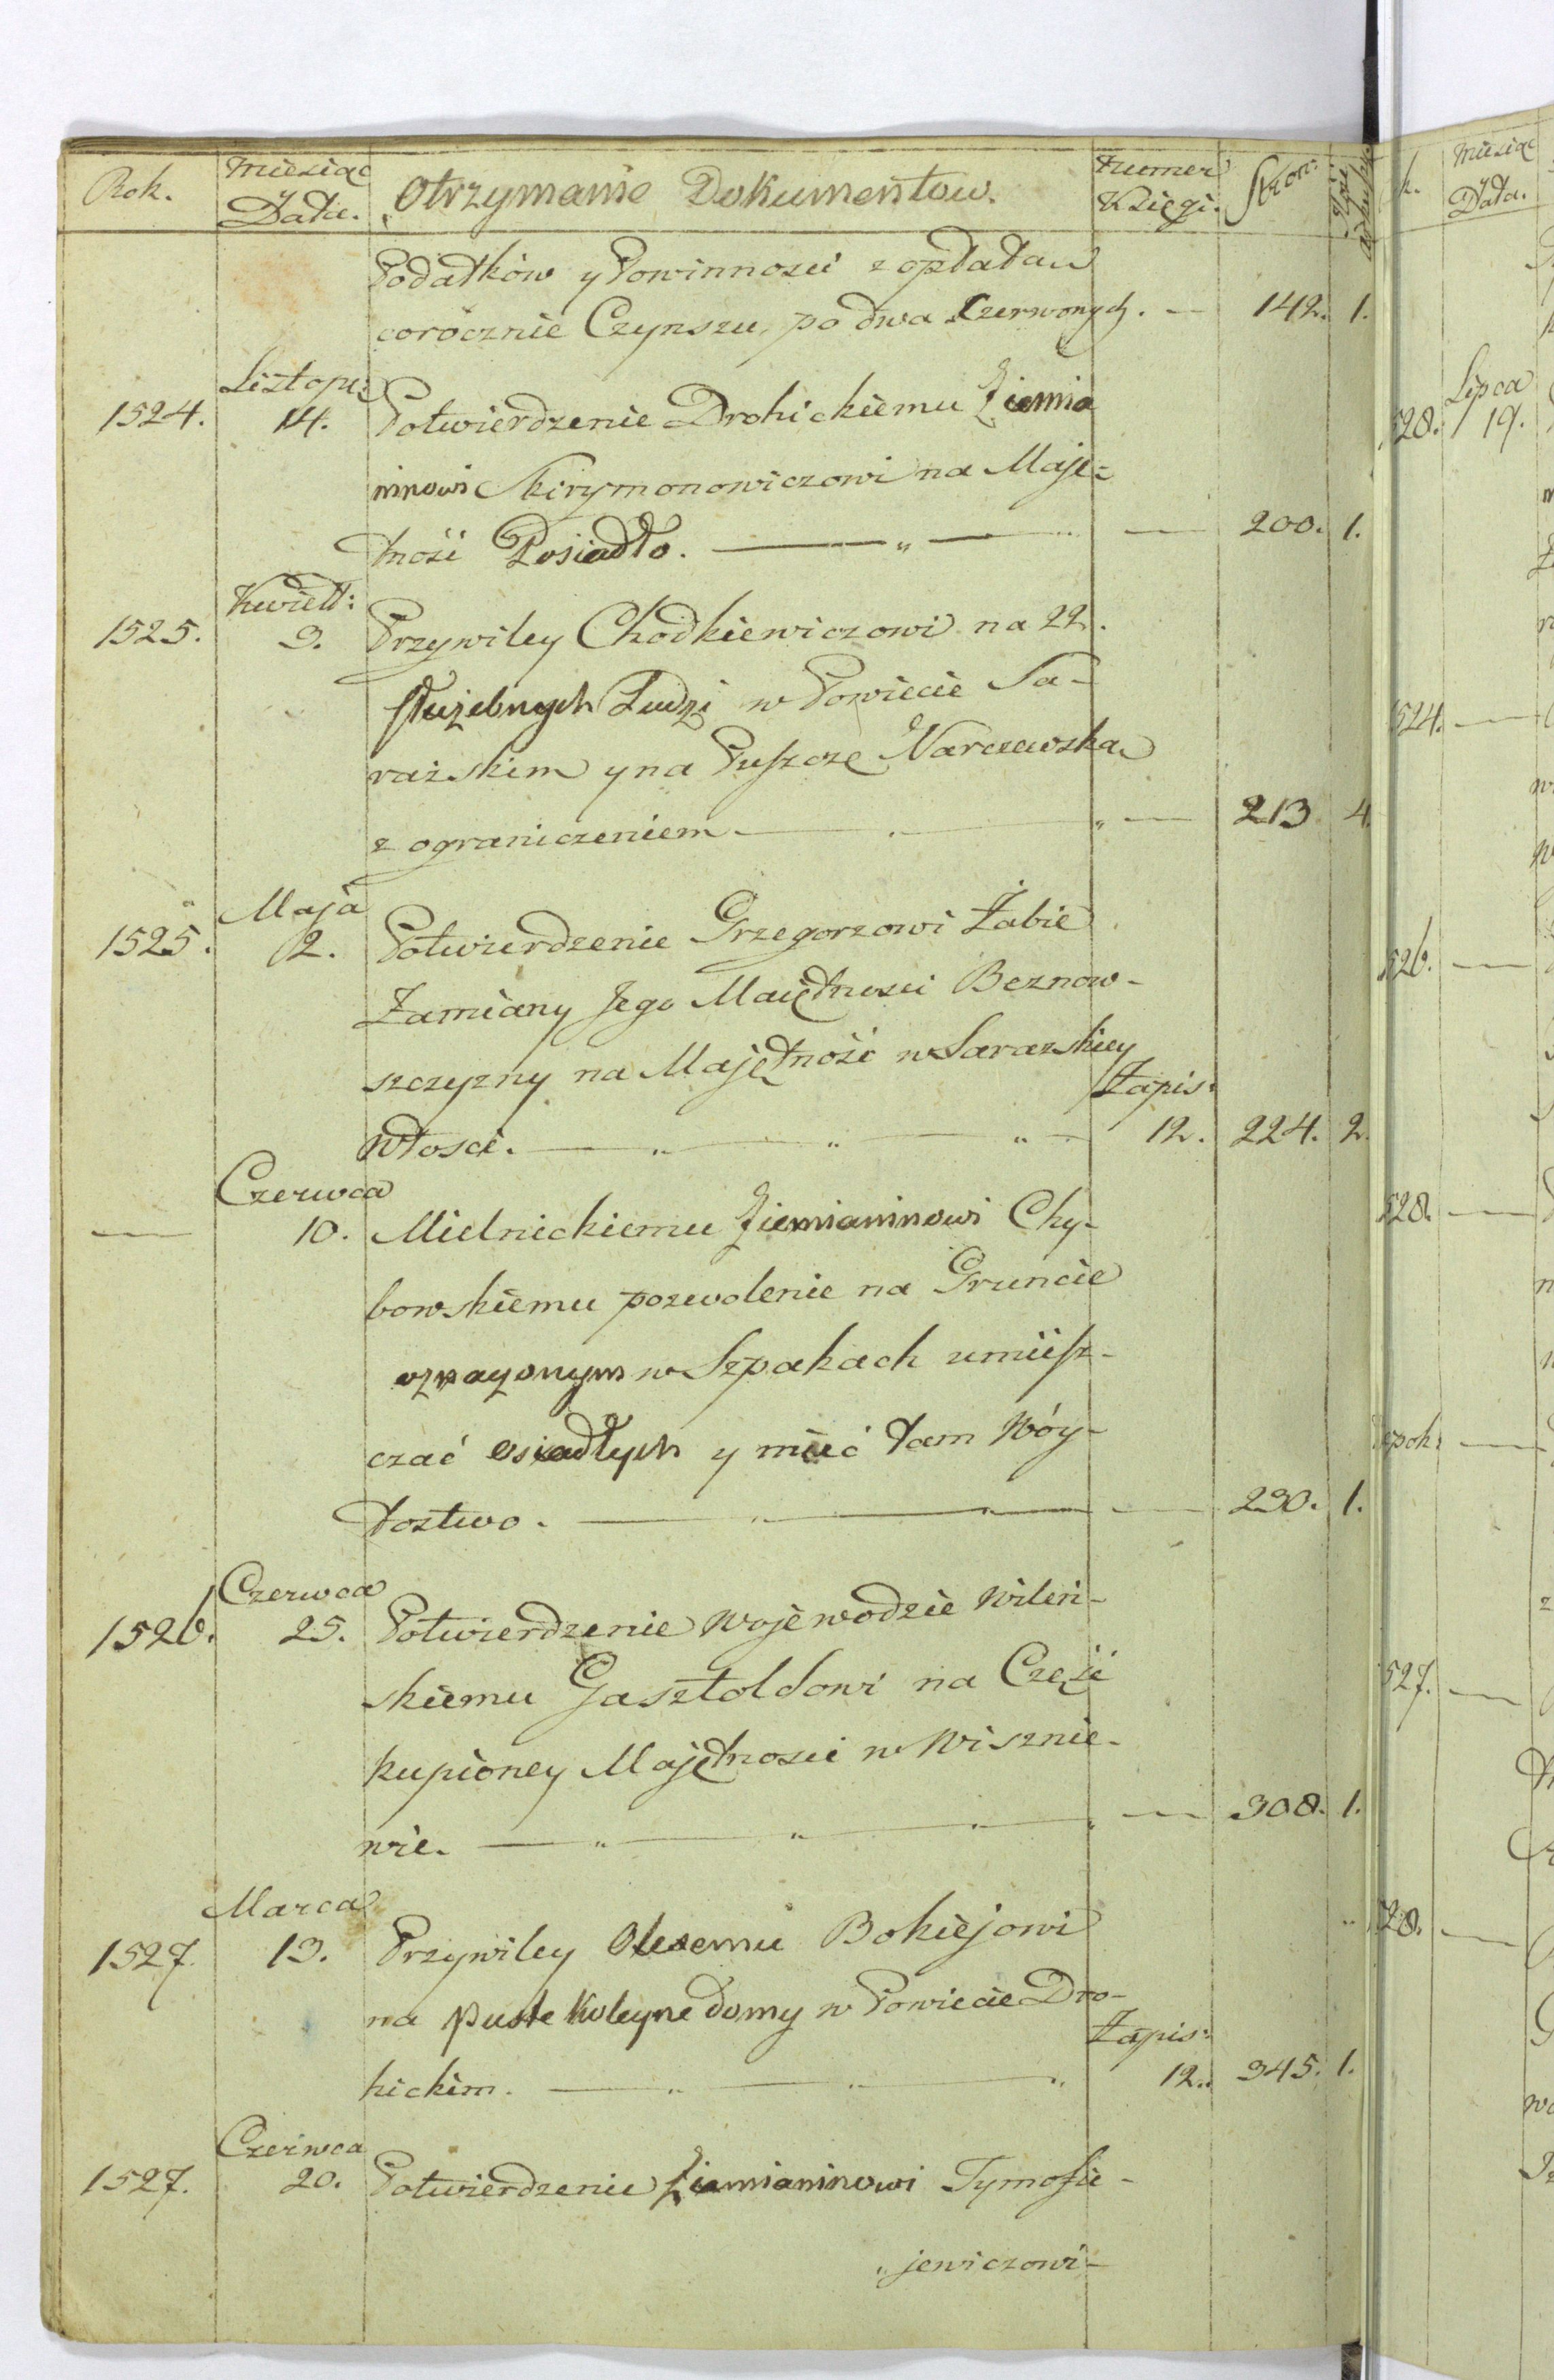 Rok. Miesiąc y Data. Otrzymanie Dokumentow. Numer Księgi. Stron:
Podatków y Powinnosci z opłatą
corocznie Czynszu, po dwa Czerwonych. — 142. 1.
Listop:
1524. 14. Potwierdzenie Drohickiemu Ziemia
ninowi Skirymonowiczowi na Maję=
tność Posiadło. — " — — 200. 1.
Kwiet:
1525. 3. Przywiley Chodkiewiczowi na 22.
służebnych Ludzi w Powiecie Sa-
razskim y na Puszczę Narczewską
z ograniczeniem — — 213 4.
Maja
1525. 2. Potwierdzenie Grzegorzowi Żabie
Zamiany Jego Maiętnosci Beznow-
szczyzny na Majętność w Sarazskiey
Zapis:
Włosci. — " — " — " — 12. 224. 2.
Czerwca
— 10. Mielnickiemu Ziemianinowi Chy-
bowskiemu pozwolenie na Gruncie
w Szpakach umiesz-
czać osiadłych y mieć tam Wóy-
tostwo. — " — " — — 230. 1.
Czerwca
1526. 25. Potwierdzenie Wojewodzie Wileń-
skiemu Gasztoldowi na Część
kupioney Majętnosci w Wisznie-
wie. — " — " — " — — 308. 1.
Marca
1527. 13. Przywiley Olesemu Bokiejowi
na puste Koleyne domy w Powiecie Dro-
Zapis:
hickim. — " — " — " 12. 345. 1.
Czerwca
1527. 20. Potwierdzenie Ziemianinowi Tymofie-
"jewiczowi-
k. Miesiąc Data.
Lipca
528. 19.
1524. —
526. —
528. —
epok: —
527. —
28. —